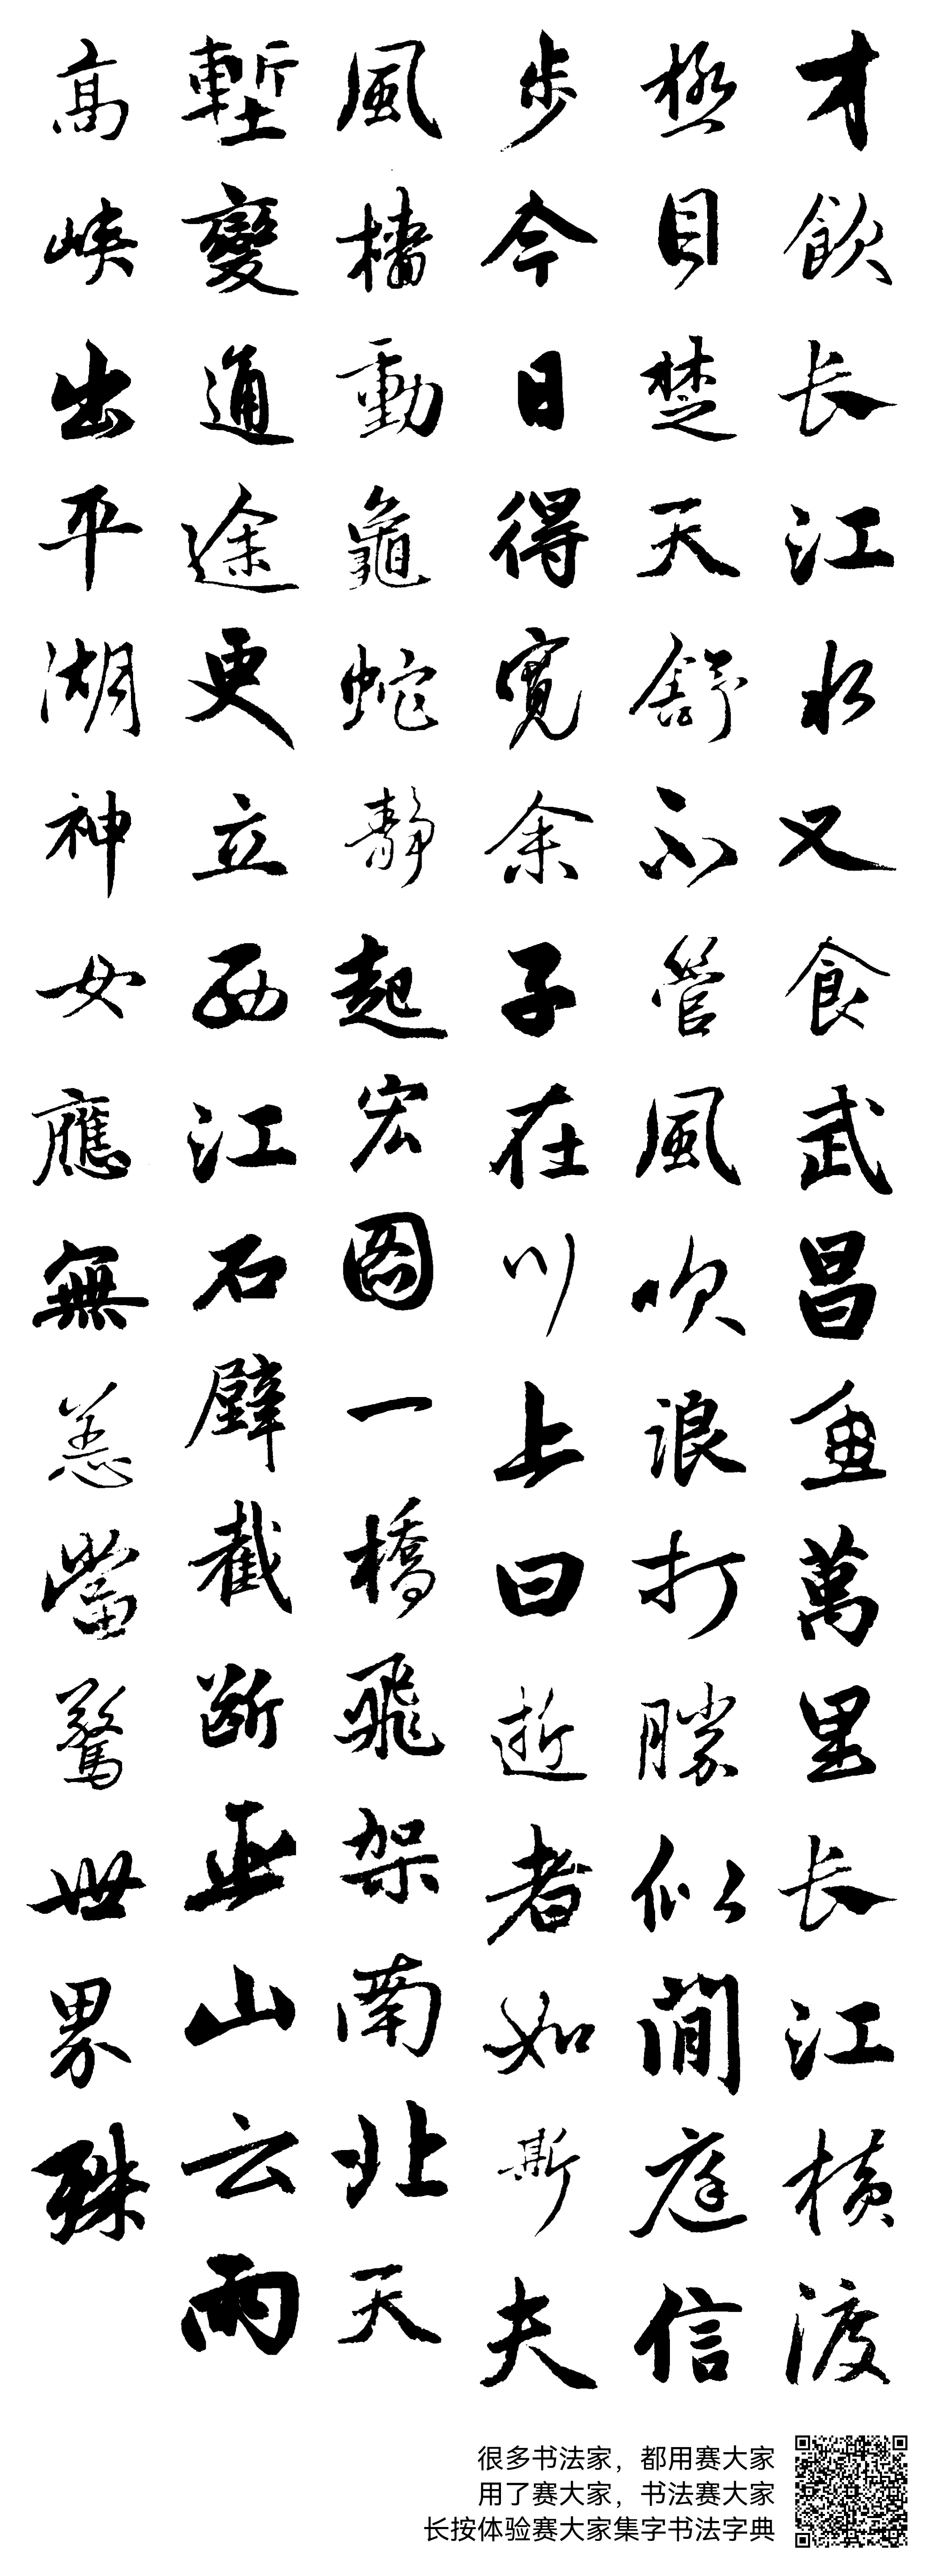 才飲长江水又食武昌魚萬里长江横渡
極目楚天舒不管風吹浪打勝似閒庭信
步今日得寬余子在川上曰逝者如斯夫
風檣動龜蛇靜起宏圖一橋飛架南北天
塹變通途更立西江石壁截断巫山云雨
高峽出平湖神女應無恙當驚世界殊
很多书法家，都用赛大家
用了赛大家，书法赛大家
长按体验赛大家集字书法字典